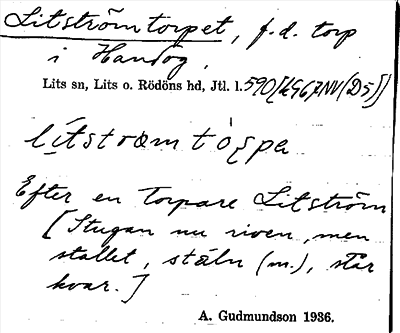 Litströmtorpet, f.d. torp
i Handog.
Lits sn, Lits o. Rödöns hd, Jtl. l. 590 [
Efter en torpare Litström
[Stugan nu riven, men
stallet, ställn (m.), står
kvar.]
A. Gudmundson 1936.